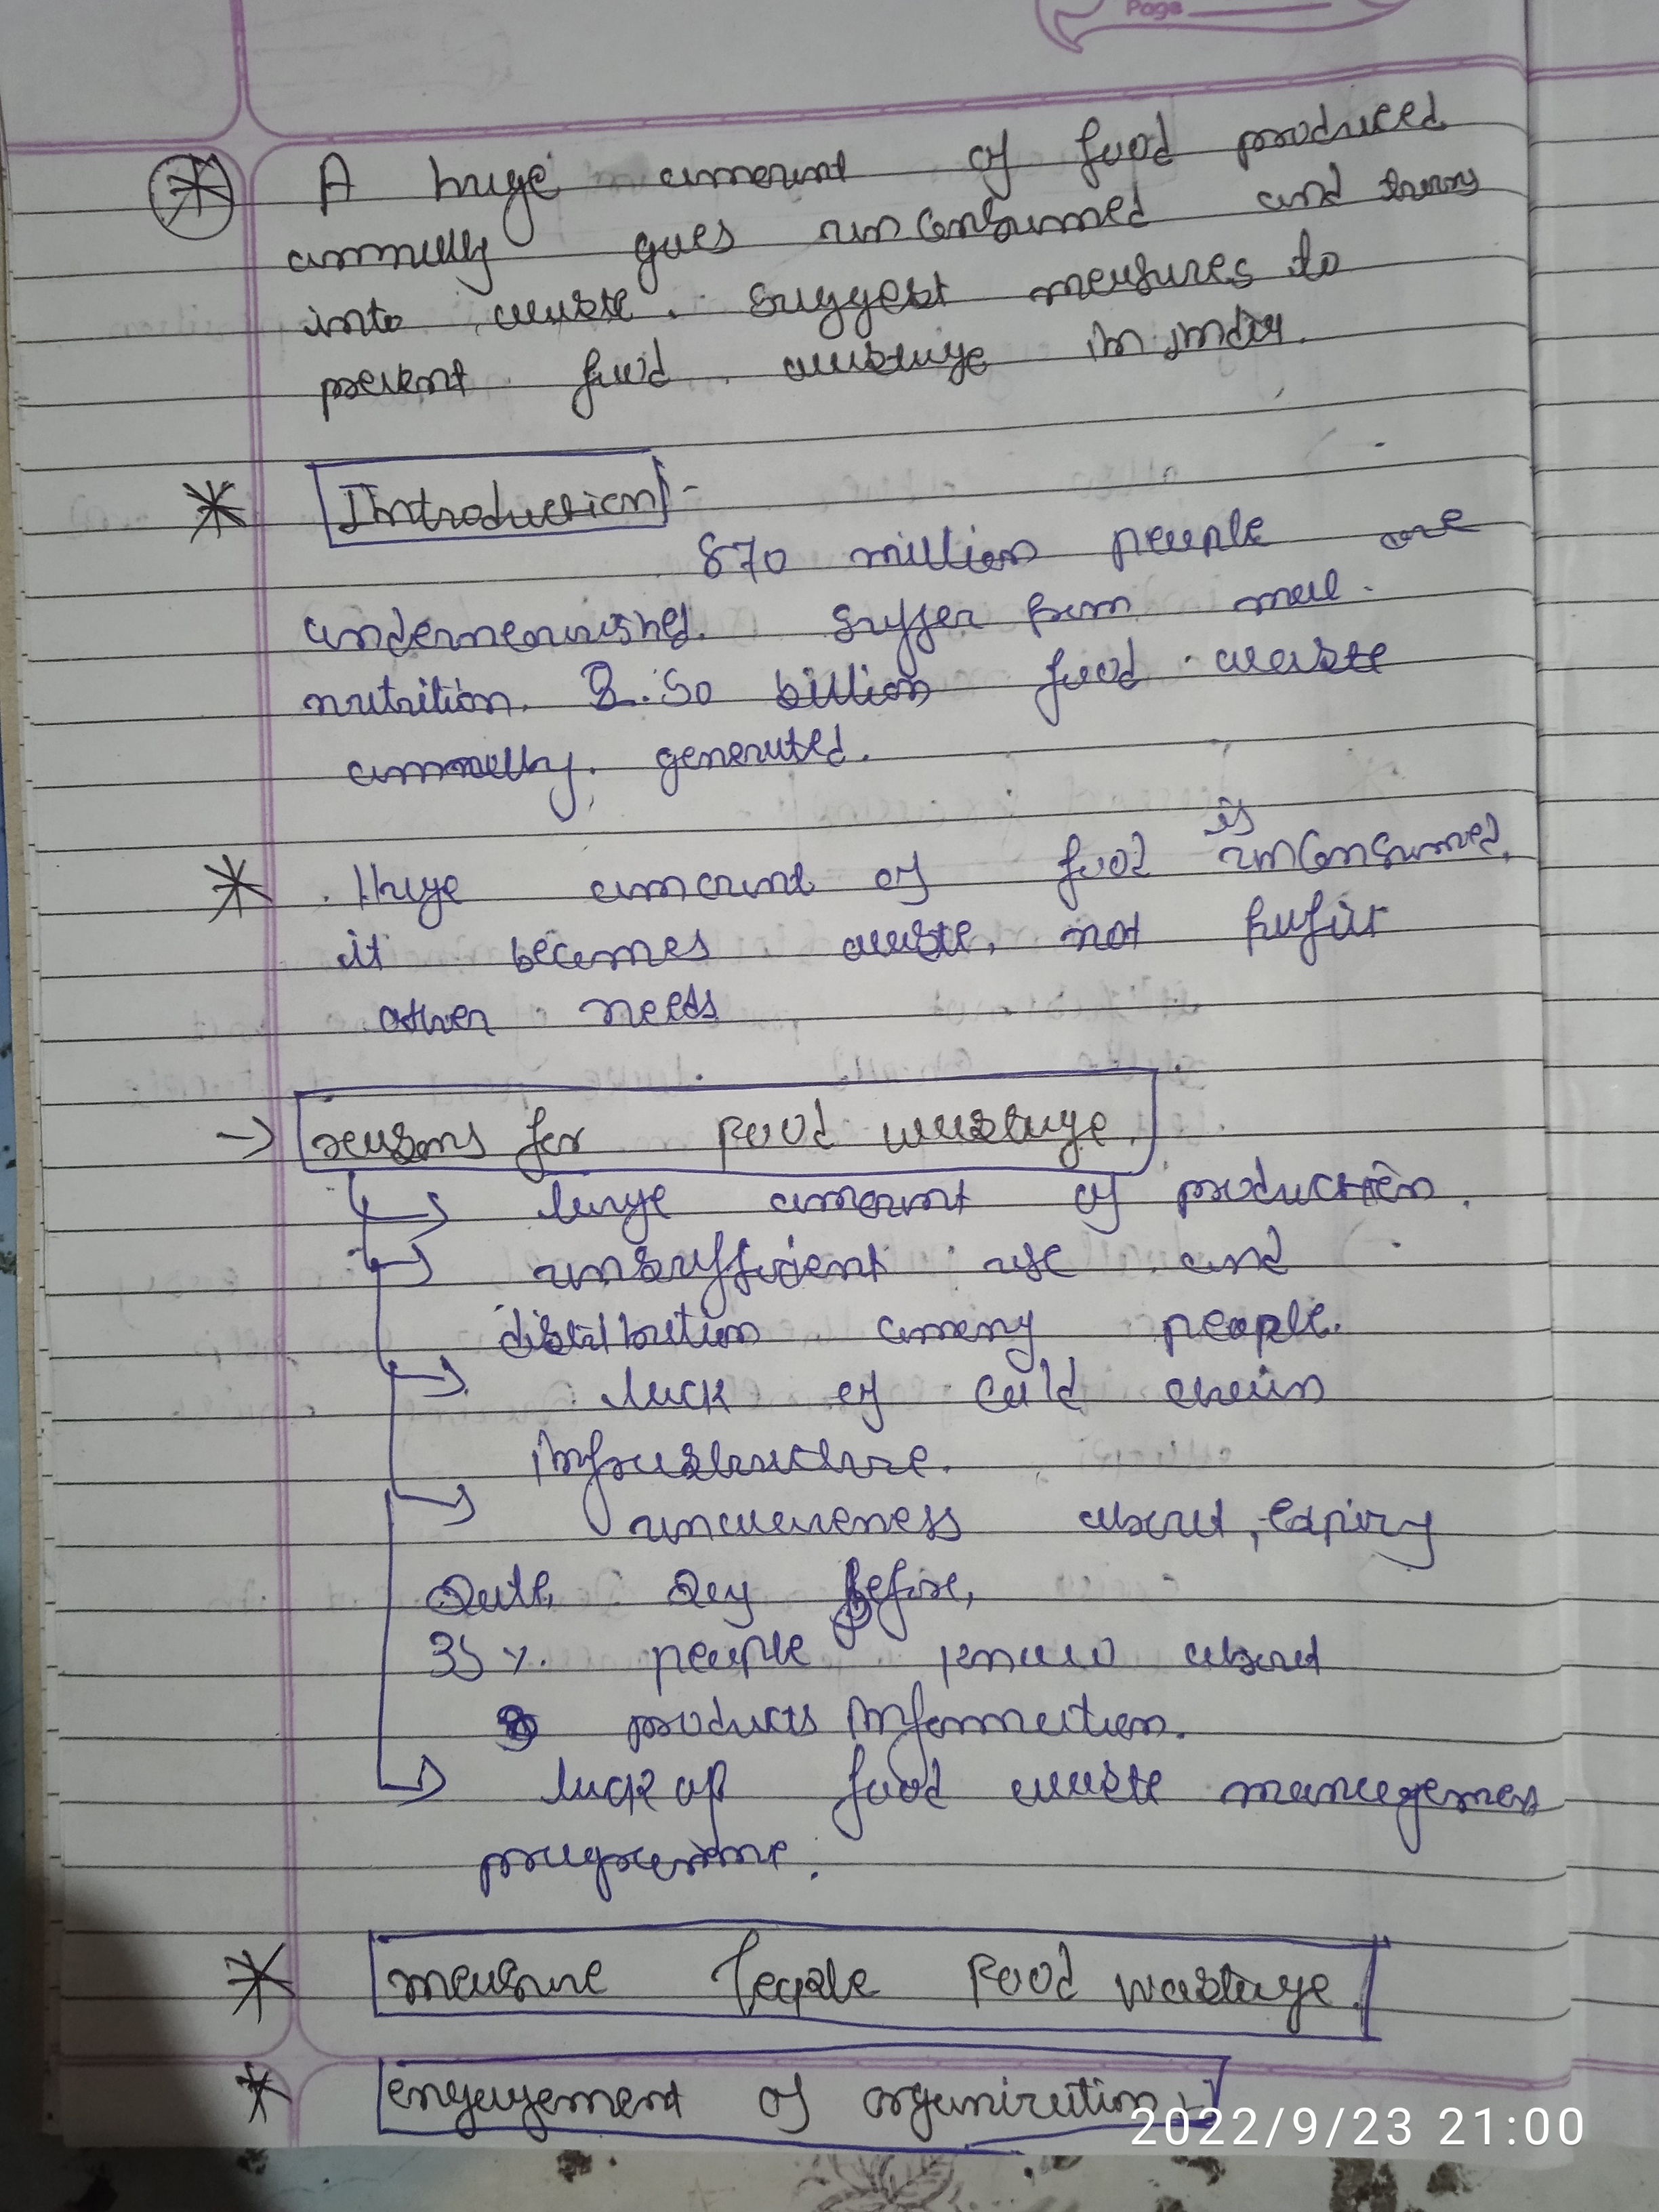 Page
A huge amount of food produced
annually goes unconsumed and turns
into waste. Suggest measures to
prevent food wastage in India.
Introduction:-
870 million people are
undernourished. Suffer from mal-
nutrition. 2.50 billion food waste
annually. generated.
Huge amount of food is unconsumed,
it becomes waste, not fulfill
other needs
reasons for Food wastage.
large amount of production.
unsufficient use and
distribution among people.
lack of cold chain
infrastructure.
unawareness about, expiry
Date, Day before,
35 % people know about
products information.
lack of food waste management
programme.
measure Food wastage.
engagement of organization:-
2022/9/23 21:00